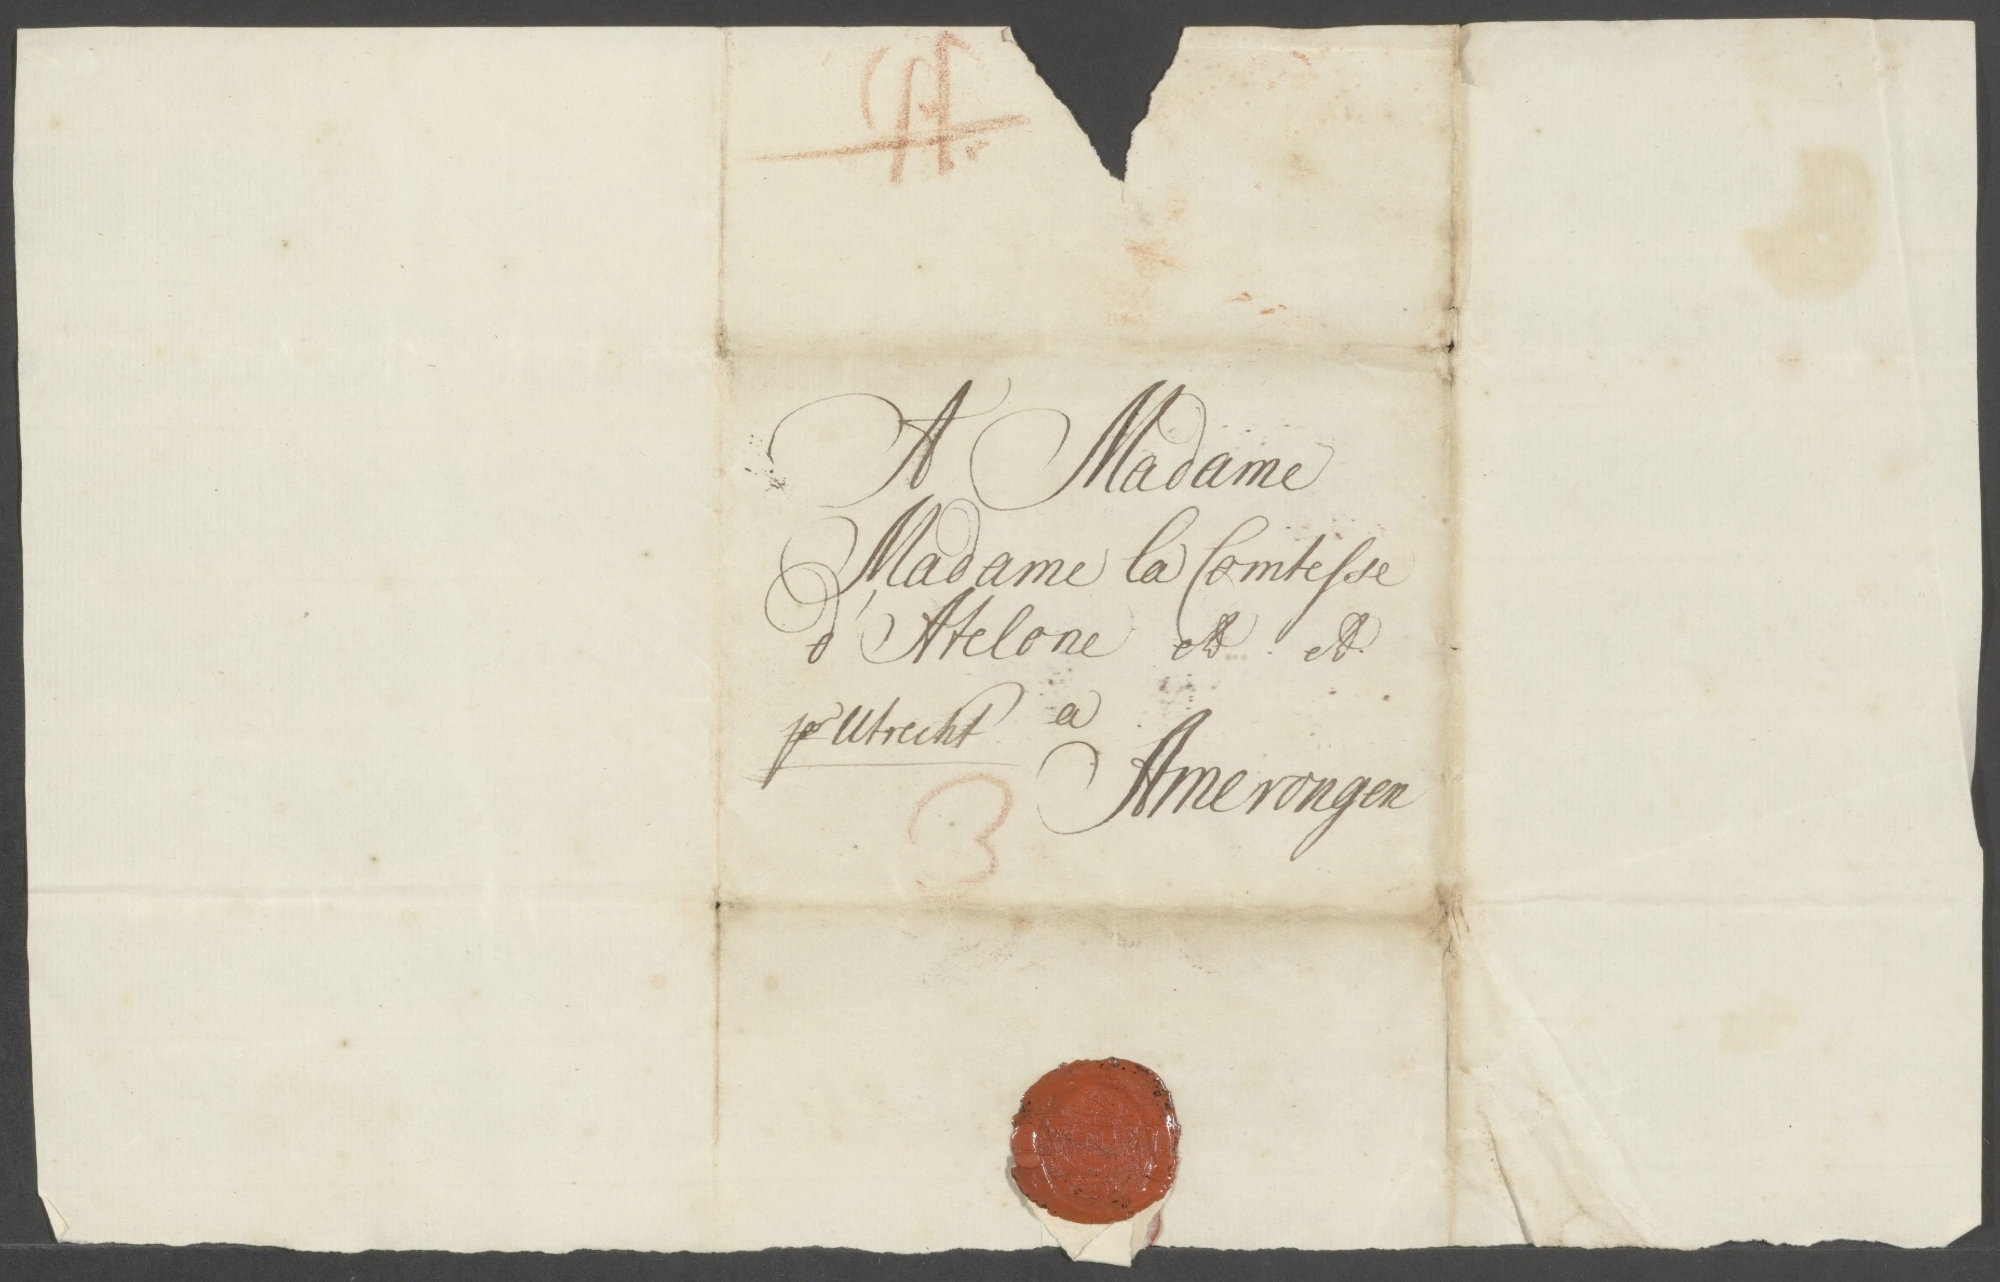 A Madame
Madame la Comtesse
d'Atelone &c &c.
pr Utrecht a
Amerongen
3